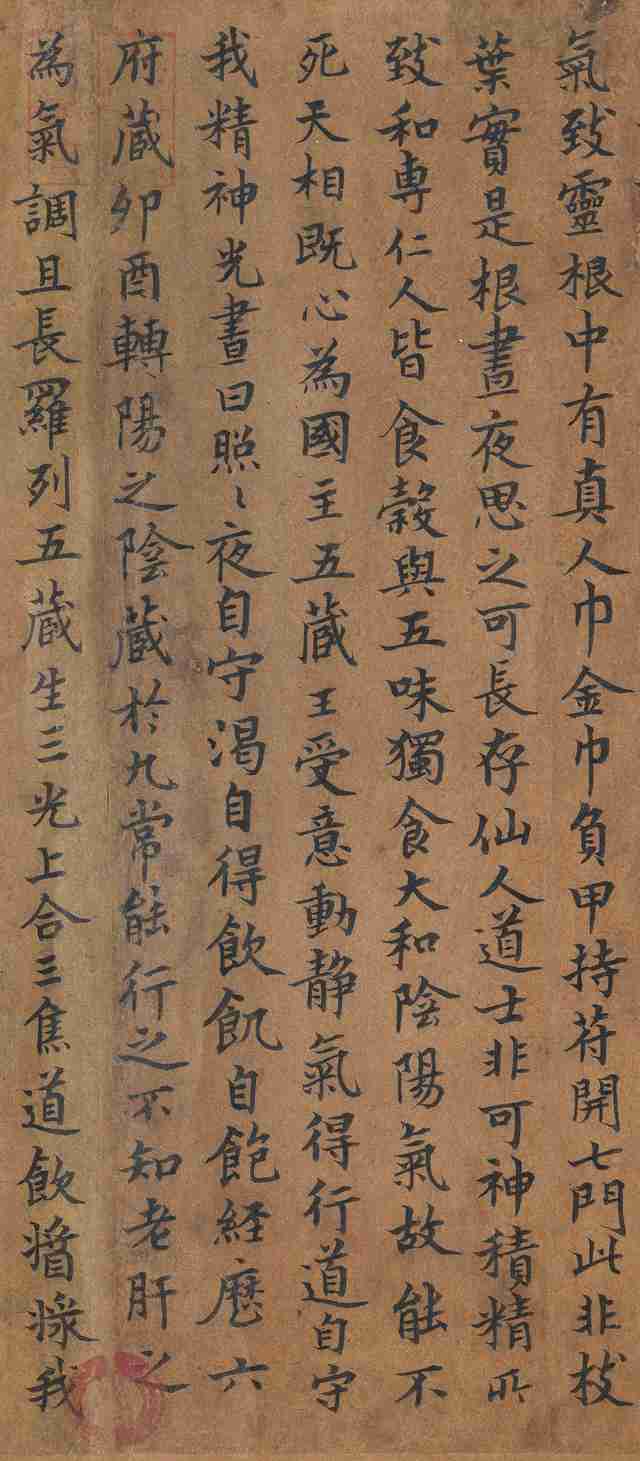 氣致靈根中有真人巾金巾負甲持苻開七門此非枝
葉實是根晝夜思之可長存仙人道士非可神積精所
致和專仁人皆食穀與五味獨食大和陰陽氣故能不
死天相既心為國主五藏王受意動静氣得行道自守
我精神光晝日照〻夜自守渴自得飲飢自飽経歷六
府藏卯酉轉陽之陰藏於九常能行之不知老肝之
為氣調且長羅列五藏生三光上合三焦道飲醬漿我